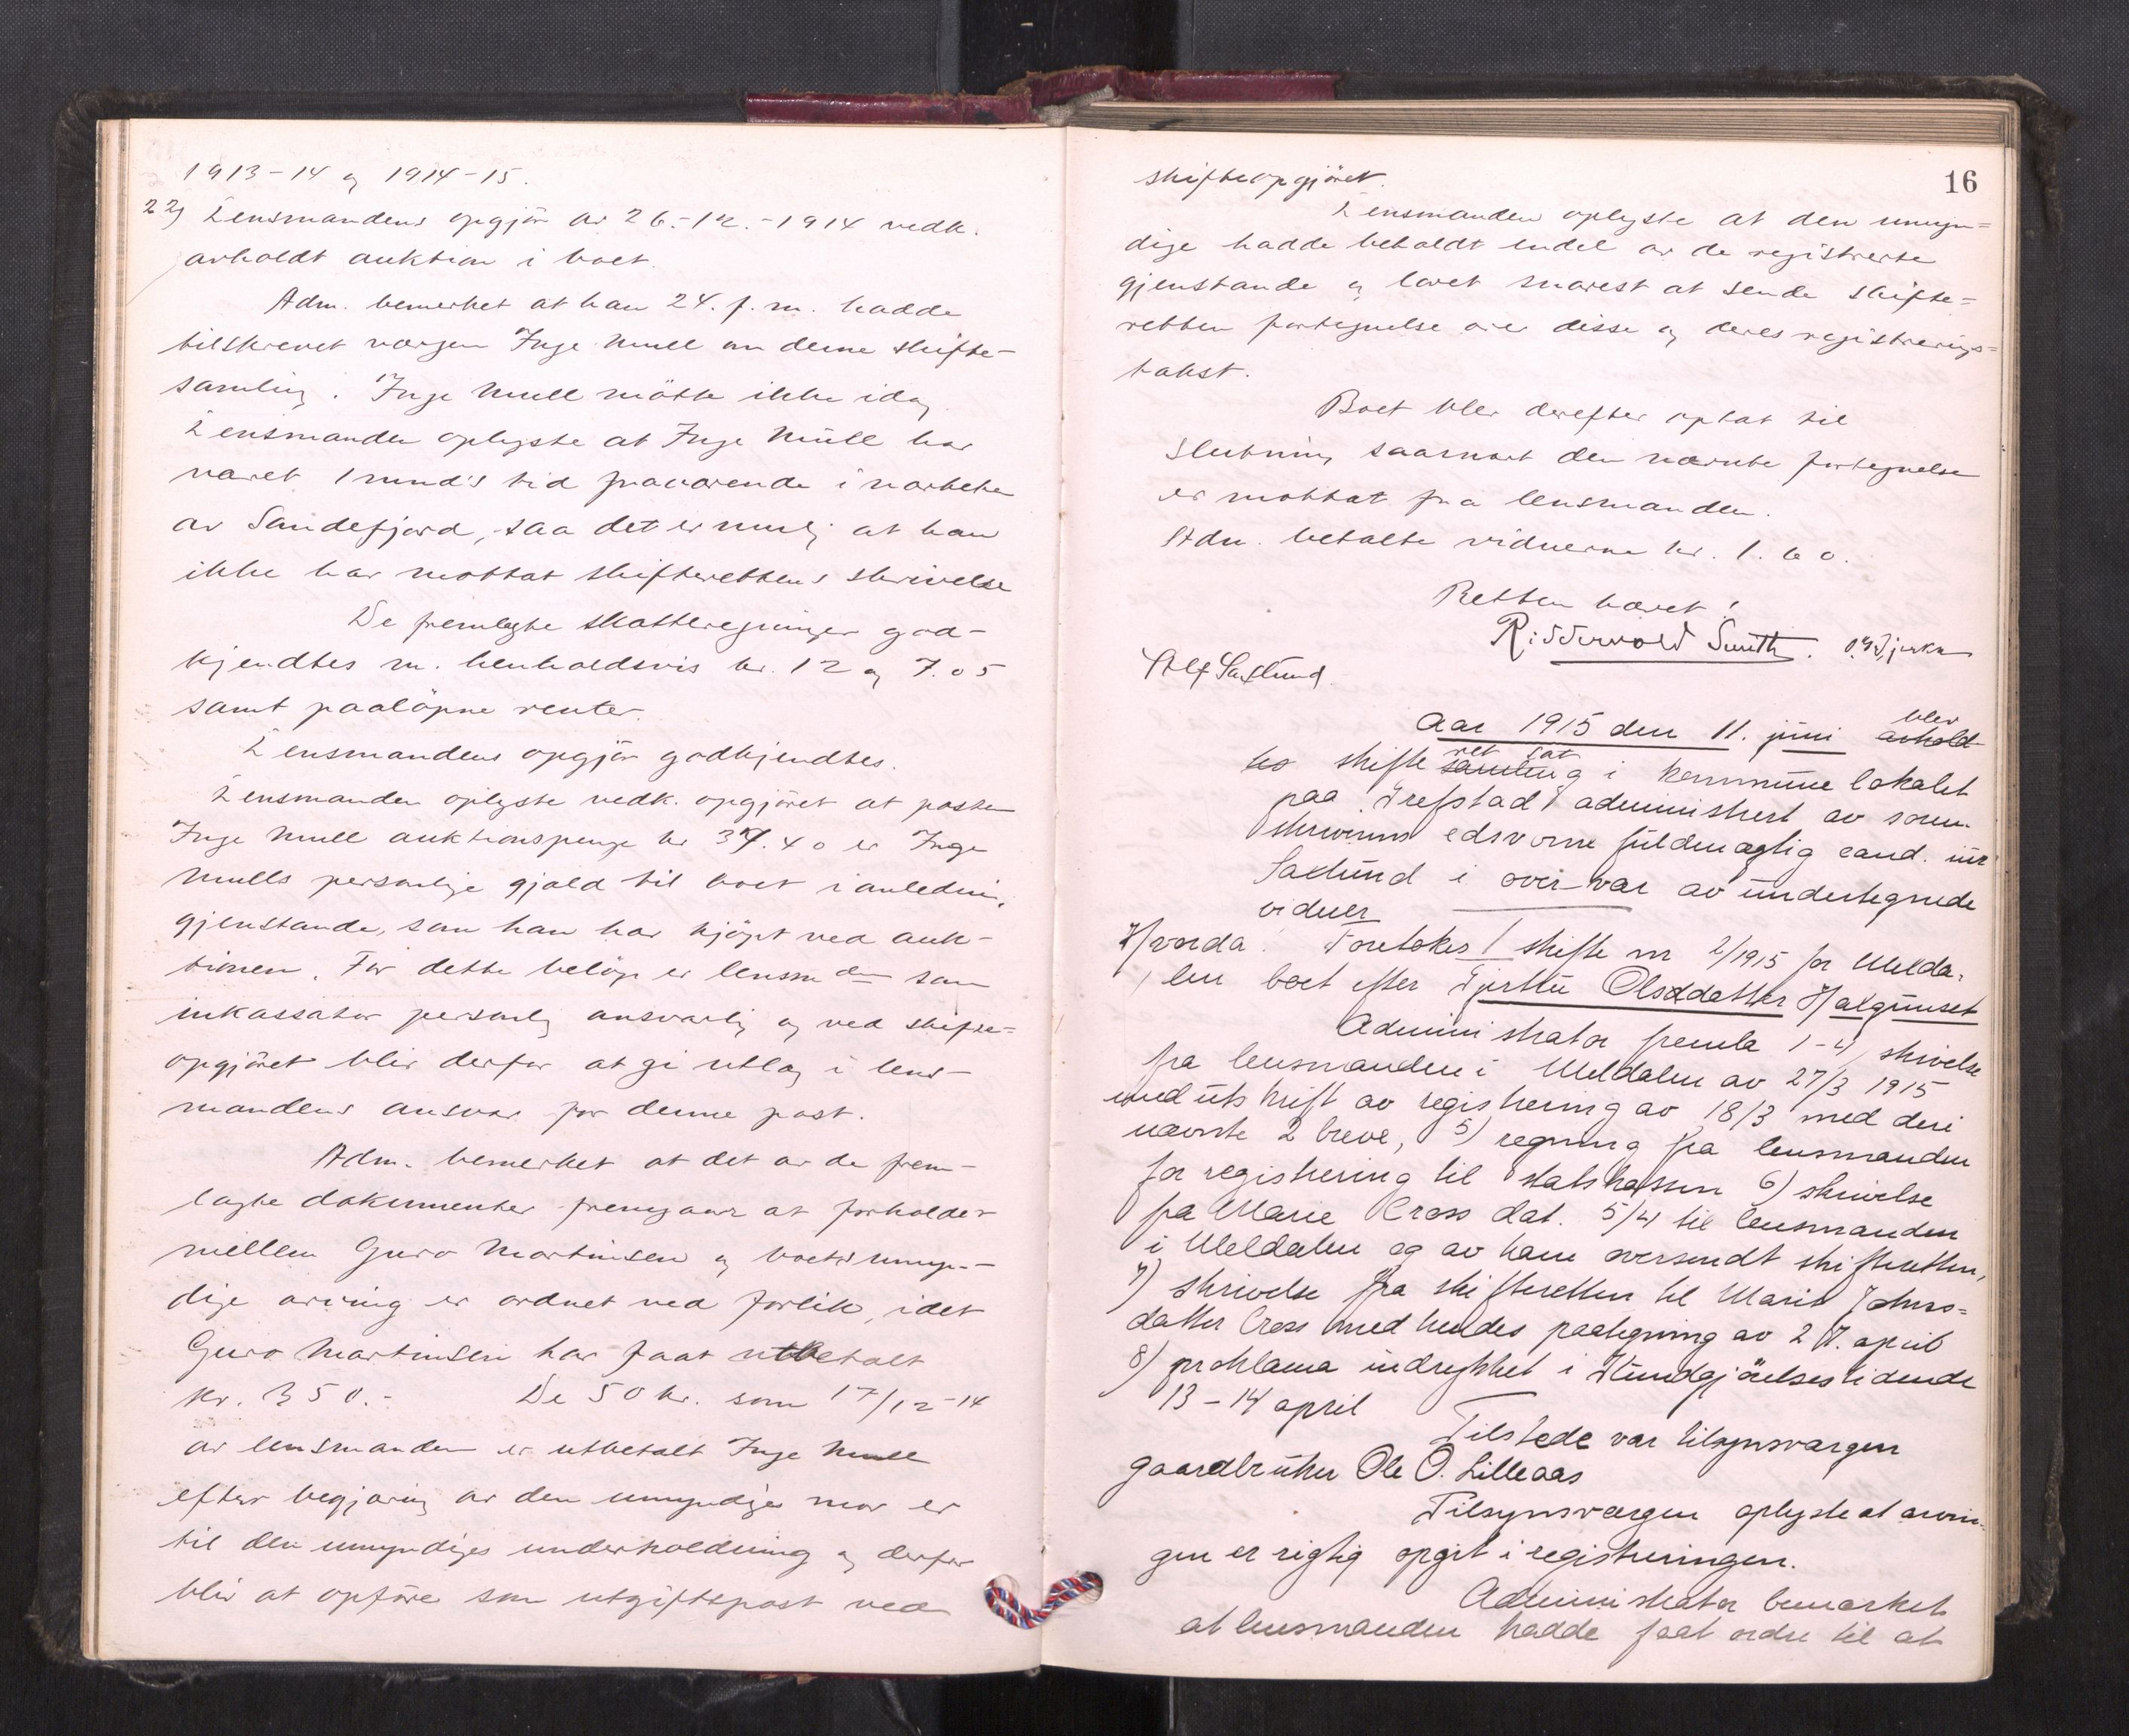 1913-14 og 1914-15.
22) Lensmandens opgjör av 26.-12.-1914 vedk.
avholdt auktion i boet.
Adm. bemerket at han 24. f. m. hadde
tilskrevet vergen Inge Mull om denne skifte-
samling. Inge Mull mötte ikke idag
Lensmanden oplyste at Inge Mull har
været 1 mnd's tid fraværende i
av Sandefjord, saa det er mulig at han
ikke har mottat skifterettens skrivelse
De fremlagte skatteregninger god-
kjendtes m. henholdsvis kr. 12 og 7.05
samt paalöpne renter.
Lensmandens opgjör godkjendtes.
Lensmanden oplyste vedk. opgjöret at posten
Inge Mull auktionspenge kr 37.40 er Inge
Mulls personlige gjæld til boet i anledning
gjenstande, som han har kjöpt ved auk-
tionen. For dette belöp er lensmden som
inkassator personlig ansvarlig og ved skifte-
opgjöret blir derfor at gi utlæg i lens-
mandens ansvar for denne post.
Adm. bemerket at det av de frem-
lagte dokumenter fremgaar at forholdet
mellem Guro Martinsen og boets umyn-
dige arving er ordnet ved forlik, idet
Guro Martinsen har faat utbetalt
kr. 350.- De 50 kr. som 17/12-14
av lensmanden er utbetalt Inge Mull
efter begjæring av den umyndiges mor er
til den umyndiges underholdning og derfor
blir at opföre som utgiftspost ved
16
skifteopgjöret.
Lensmanden oplyste at den umyn=
dige hadde beholdt endel av de registrerte
gjenstande og lovet snarest at sende skifte=
retten fortegnelse over disse og deres registrerings=
takst.
Boet blev derefter optat til
slutning saasnart den nævnte fortegnelse
er mottat fra lensmanden.
Adm. betalte vidnerne kr. 1.60.
Retten hævet!
Ridderwold Smith.
Alf Saxlund
Aar 1915 den 11. juni blev avhold
tes skifte ret sat samling i kommune lokalet
paa Grefstad administrert av soren-
skriverens edsvorne fuldmægtig cand. jur
Saxlund i over-vær av undertegnede
vidner
Hvorda: Foretokes I skifte nr 2/1915 for Melda-
len boet efter Gjertru Olsddatter Halgunset
Administrator fremla 1-4) skrivelse
fra lensmanden i Meldalen av 27/3 1915
med utskrift av registrering av 18/3 med deri
nævnte 2 breve, 5) regning fra lensmanden
for registrering til statskassen 6) skrivelse
fra Marie Cross dat. 5/4 til lensmanden
i Meldalen og av ham oversendt skifteretten,
7) skrivelse fra skifteretten til Marit Johns=
datter Cross med hendes paategning av 27. april
8) proklama indrykket i Kundgjörelsestidende
13-14 april
Tilstede var tilsynsvergen
gaardbruker Ole O. Lilleaas
Tilsynsværgen oplyste at arvin-
gen er rigtig opgit i registreringen.
Administrator bemærket
at lensmanden hadde faat ordre til at